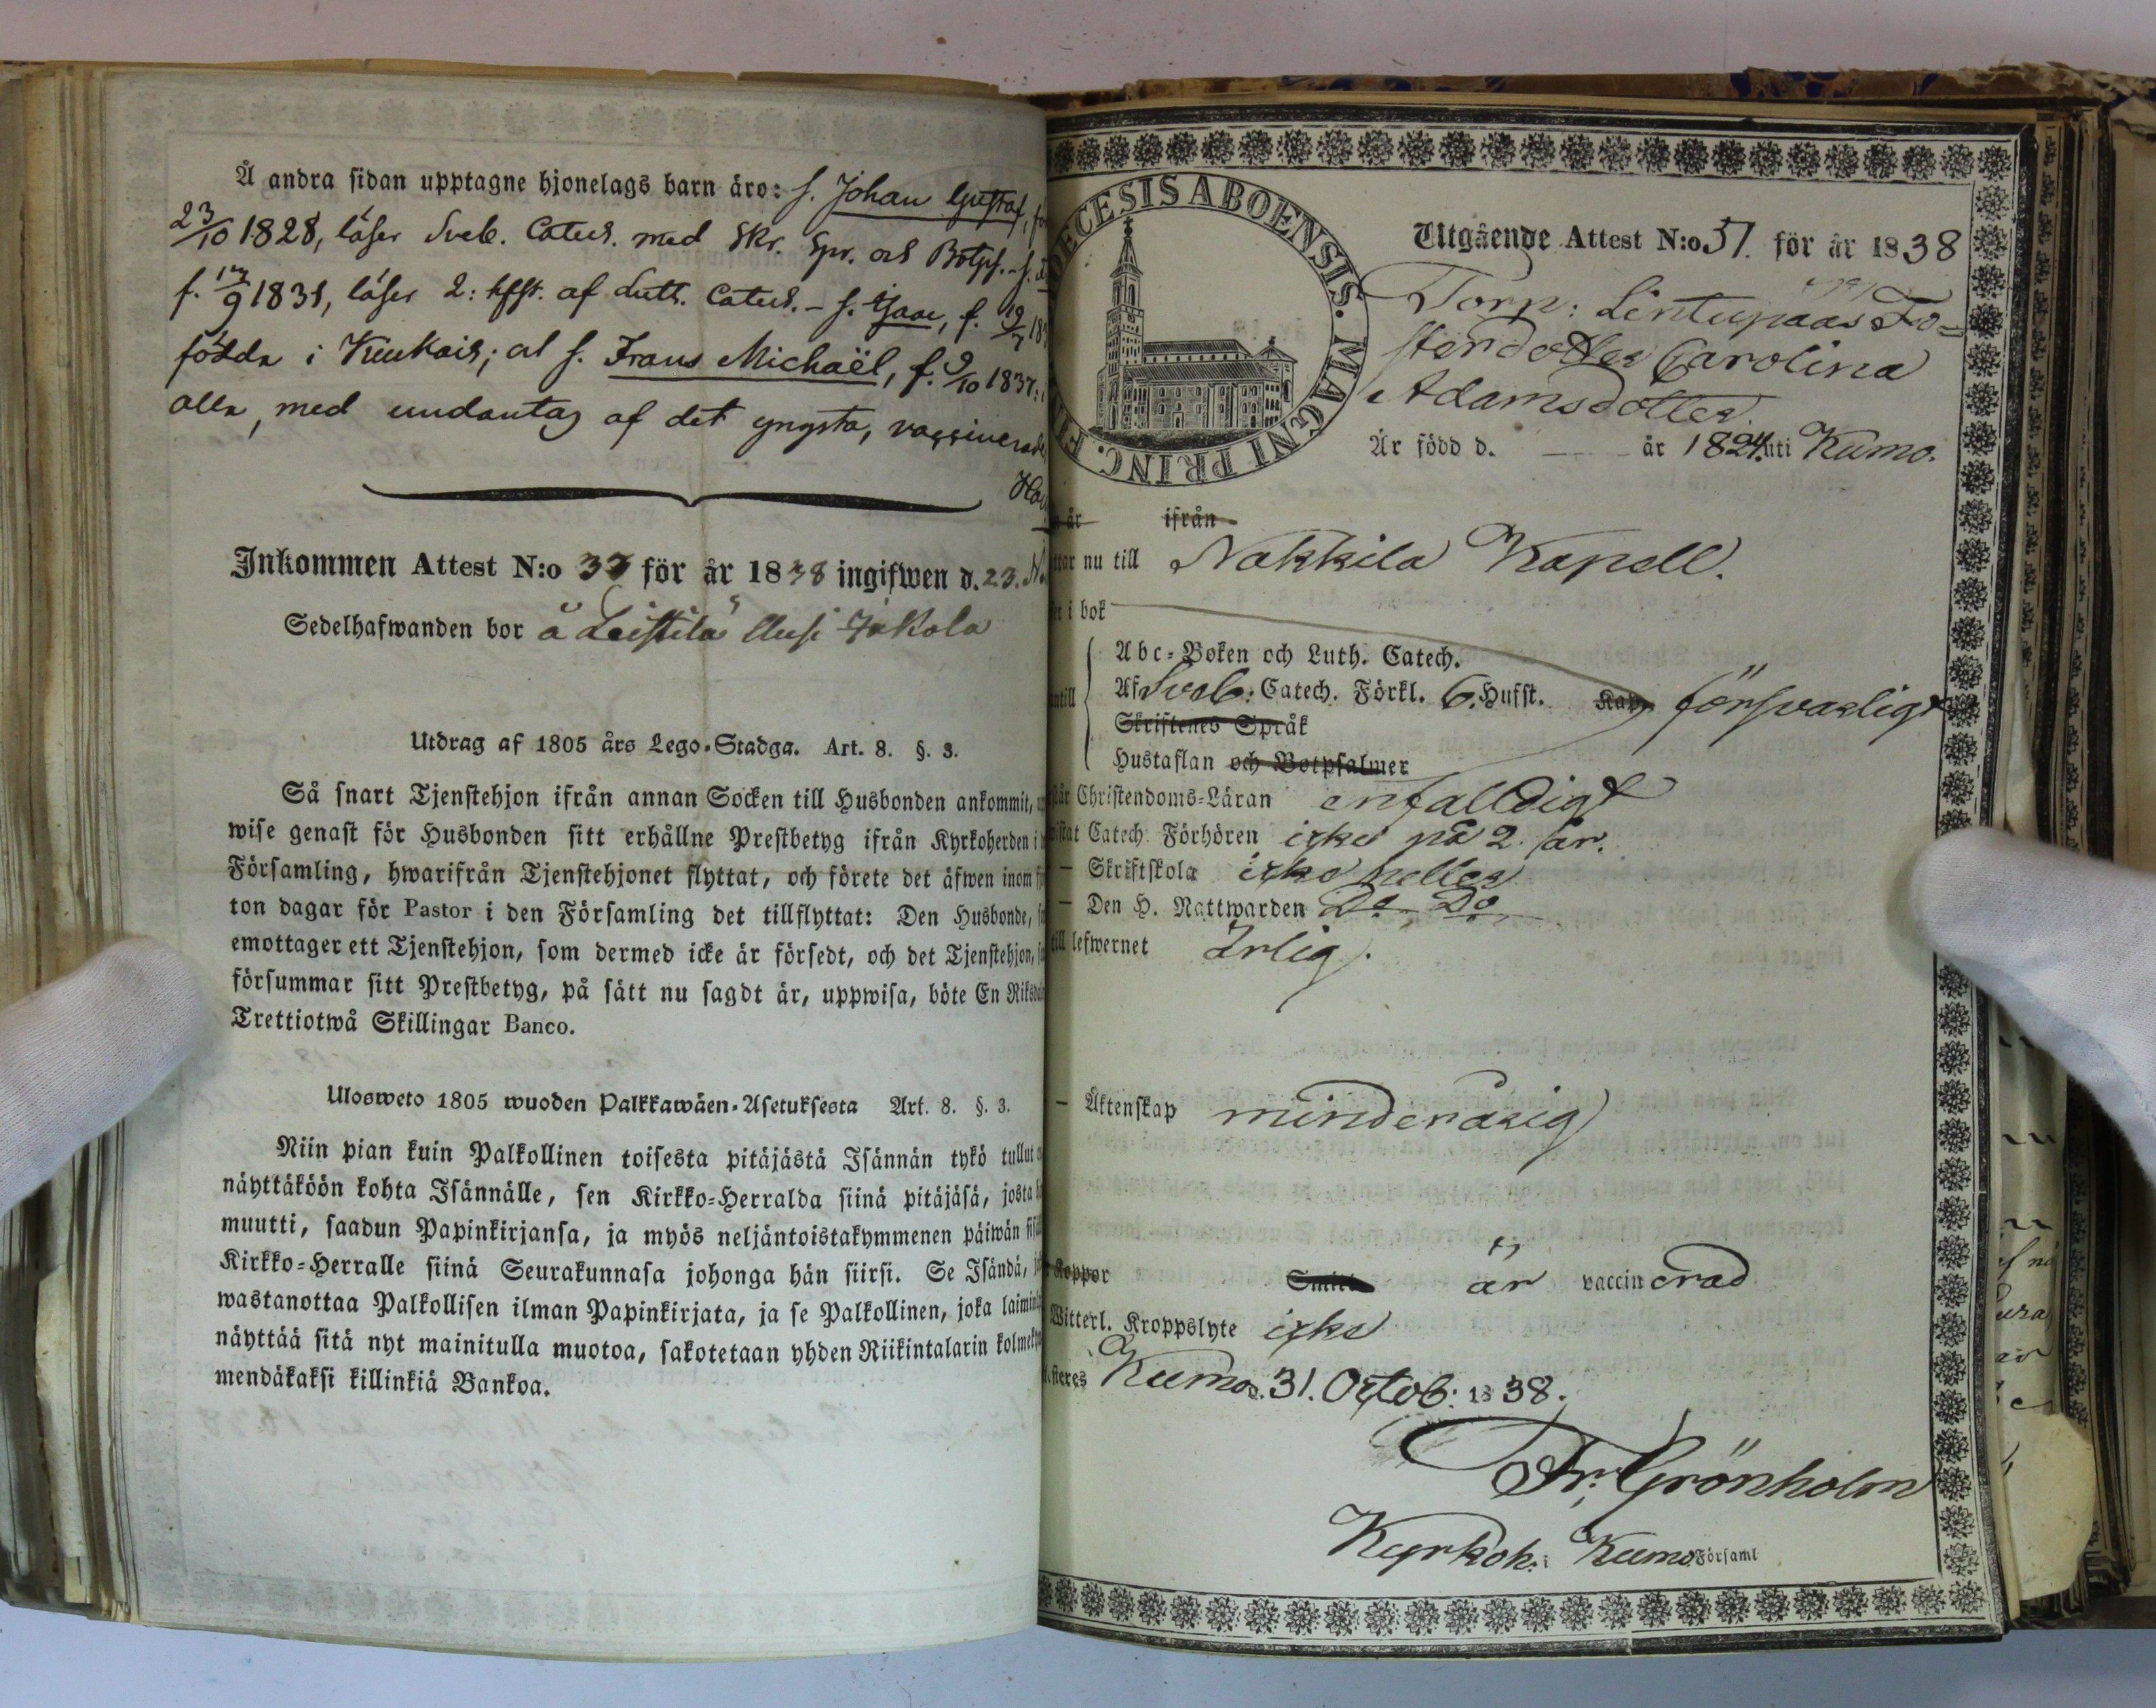 Å andra sidan upptagne hjonelags barn äro: s. Johan Gustaf,
23/10 1828, läser Sveb. Catech. med Skr. Spr. och Botps. - s.
f. 17/9 1831, läser 2: hfst. af Luth. Catech. - s. Isaac, f. 19/7 18
födda i Kiukais; och s. Frans Michaël, f. 9/10 1837;
alla, med undantag af det yngsta, vaccinerade
Inkommen Attest N:o 33 för år 1838 ingifwen d. 23.
Sedelhafwanden bor å Leistilä Uusi Jaakola
Utdrag af 1805 års Lego-Stadga. Art. 8. §. 3.
Så snart Tjenstehjon ifrån annan Socken till Husbonden ankommit,
wise genast för Husbonden sitt erhållne Prestbetyg ifrån Kyrkoherden i
Församling, hwarifrån Tjenstehjonet flyttat, och förete det äfwen inom
ton dagar för Pastor i den Församling det tillflyttat: Den Husbonde,
emottager ett Tjenstehjon, som dermed icke är försedt, och det Tjenstehjon,
försummar sitt Prestbetyg, på sätt nu sagdt är, uppwisa, böte En Riksdal
Trettiotwå Skillingar Banco.
Ulosweto 1805 wuoden Palkkawäen-Asetuksesta Art. 8. §. 3.
Niin pian kuin Palkollinen toisesta pitäjästä Isännän tykö tullut
näyttäköön kohta Isännälle, sen Kirkko-Herralda siinä pitäjäsä, josta
muutti, saadun Papinkirjansa, ja myös neljäntoistakymmenen päiwän
Kirkko-Herralle siinä Seurakunnasa johonga hän siirsi. Se Isändä,
wastanottaa Palkollisen ilman Papinkirjata, ja se Palkollinen, joka laimin
näyttää sitä nyt mainitulla muotoa, sakotetaan yhden Riikintalarin kolmeky
mendäkaksi killinkiä Bankoa.
DIOECESIS ABOENSIS. MAGNI PRINC. FI
Utgående Attest N:o 51. för år 1838
Torp: Lintupaas Fo=
sterdotter Carolina
Adamsdotter.
Är född d. — år 1824 uti Kumo.
år ifrån
ttar nu till Nakkila Kapell.
er i bok
Abc-Boken och Luth. Catech.
antill Af Sveb: Catech. Förkl. 6. Hufst. Kap. försvarligt
Skriftenes Språk
Hustaflan och Botpsalmer
står Christendoms-Läran enfalldigt
istat Catech. Förhören icke på 2. år.
— Skriftskola icke heller
— Den H. Nattwarden Do Do
till lefwernet Ärlig.
— Äktenskap minderårig
Koppor Smitt är vaccinerad
Witterl. Kroppslyte icke
esteres Kumo d. 31. Octob: 1838.
Fr: Grönholm
Kyrkoh: i Kumo Församl